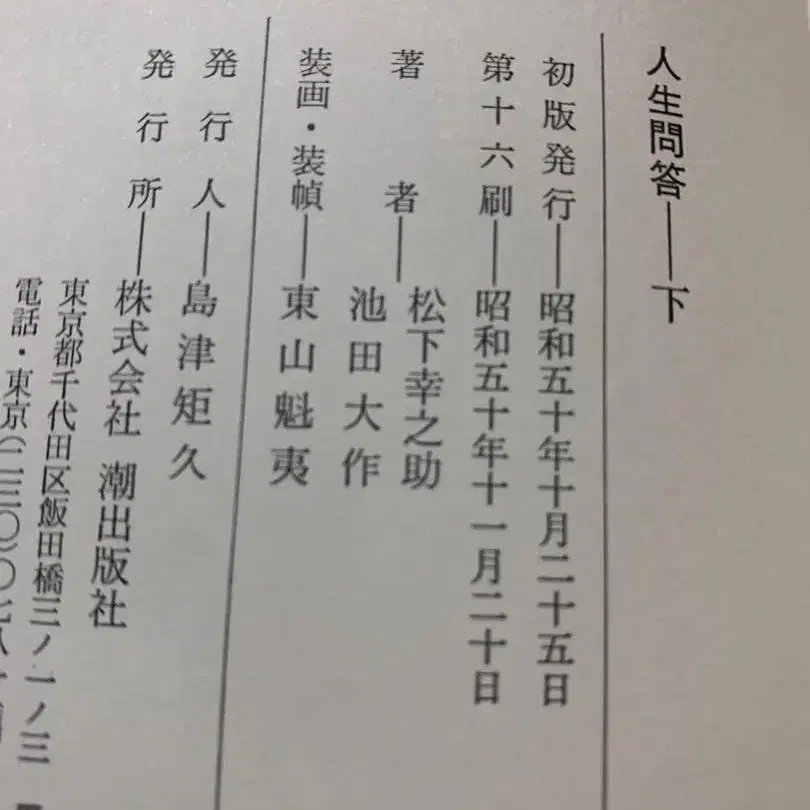 人生問答――下
初版発行――昭和五十年十月二十五日
第十六刷――昭和五十年十一月二十日
著者――松下幸之助
池田大作
装画・装幀――東山魁夷
発行人――島津矩久
発行所――株式会社 潮出版社
東京都千代田区飯田橋三ノ一ノ三
電話・東京(二三〇)〇七